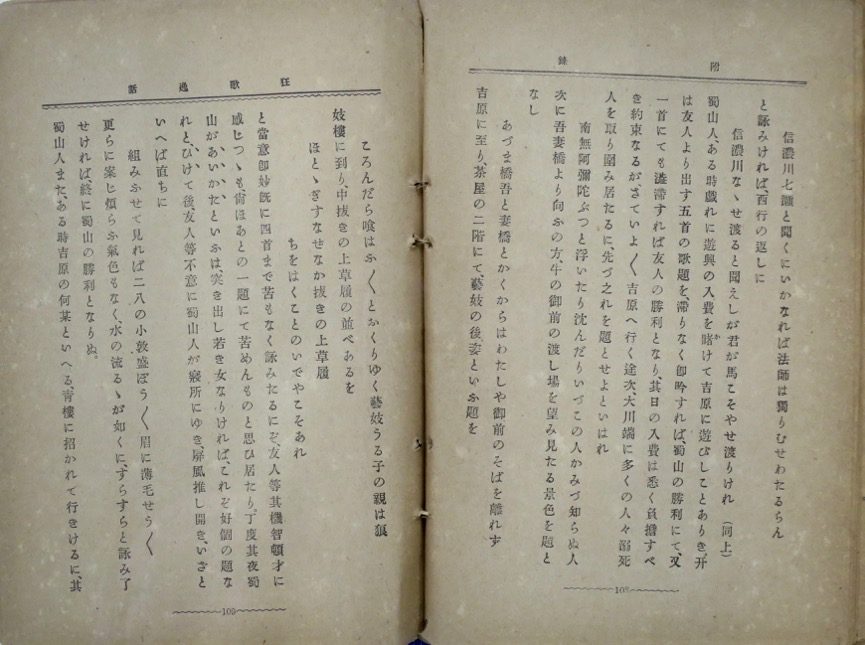 附錄
信濃川七瀨と聞くにいかなれば法師は獨りむせわたるらん
と詠みければ、西行の返しに
信濃川なゝせ渡ると聞えしが君が馬こそやせ渡りけれ (同上)
蜀山人、ある時戯れに遊興の入費を賭けて吉原に遊びしことありき、幵
は友人より出す五首の歌題を、滞りなく卽吟すれば、蜀山の勝利にて、又
一首にても澁滯すれば友人の勝利となり、其日の入費は悉く負擔すべ
き約束なるが、さていよ〳〵吉原へ行く途次、大川端に多くの人々溺死
人を取り圍み居たるに、先づ之れを題とせよといはれ
南無阿彌陀ぶつと浮いたり沈んだりいづこの人かみづ知らぬ人
次に吾妻橋より向ふの方、牛の御前の渡し場を望み見たる景色を題と
なし
あづま橋吾と妻橋とかくからはわたしや御前のそばを離れず
吉原に至り、茶屋の二階にて、藝妓の後姿といふ題を
108
狂歌逸話
ころんだら喰はふ〳〵とかくりゆく藝妓うる子の親は狼
妓樓に到り、中拔きの上草履の並べあるを
ほとゝぎすなせなか拔きの上草履
ちをはくことのいでやこそあれ
と當意卽妙旣に四首まで苦もなく詠みたるにぞ、友人等其機智頓才に
感じつゝも、尙ほあとの一題にて苦めんものと思ひ居たり、丁度其夜蜀
山があいかたといふは、突き出し若き女なりければ、これぞ好個の題な
れと、ひけて後友人等不意に蜀山人が寢所にゆき、屛風推し開き、いざと
いへば直ちに
組みふせて見れば二八の小敦盛ぼう〳〵眉に薄毛せう〳〵
更らに案じ煩らふ氣色もなく、水の流るゝが如くに、すらすらと詠み了
せければ、終に蜀山の勝利となりぬ。
蜀山人また、ある時吉原の何某といへる、靑樓に招かれて行きけるに、其
109